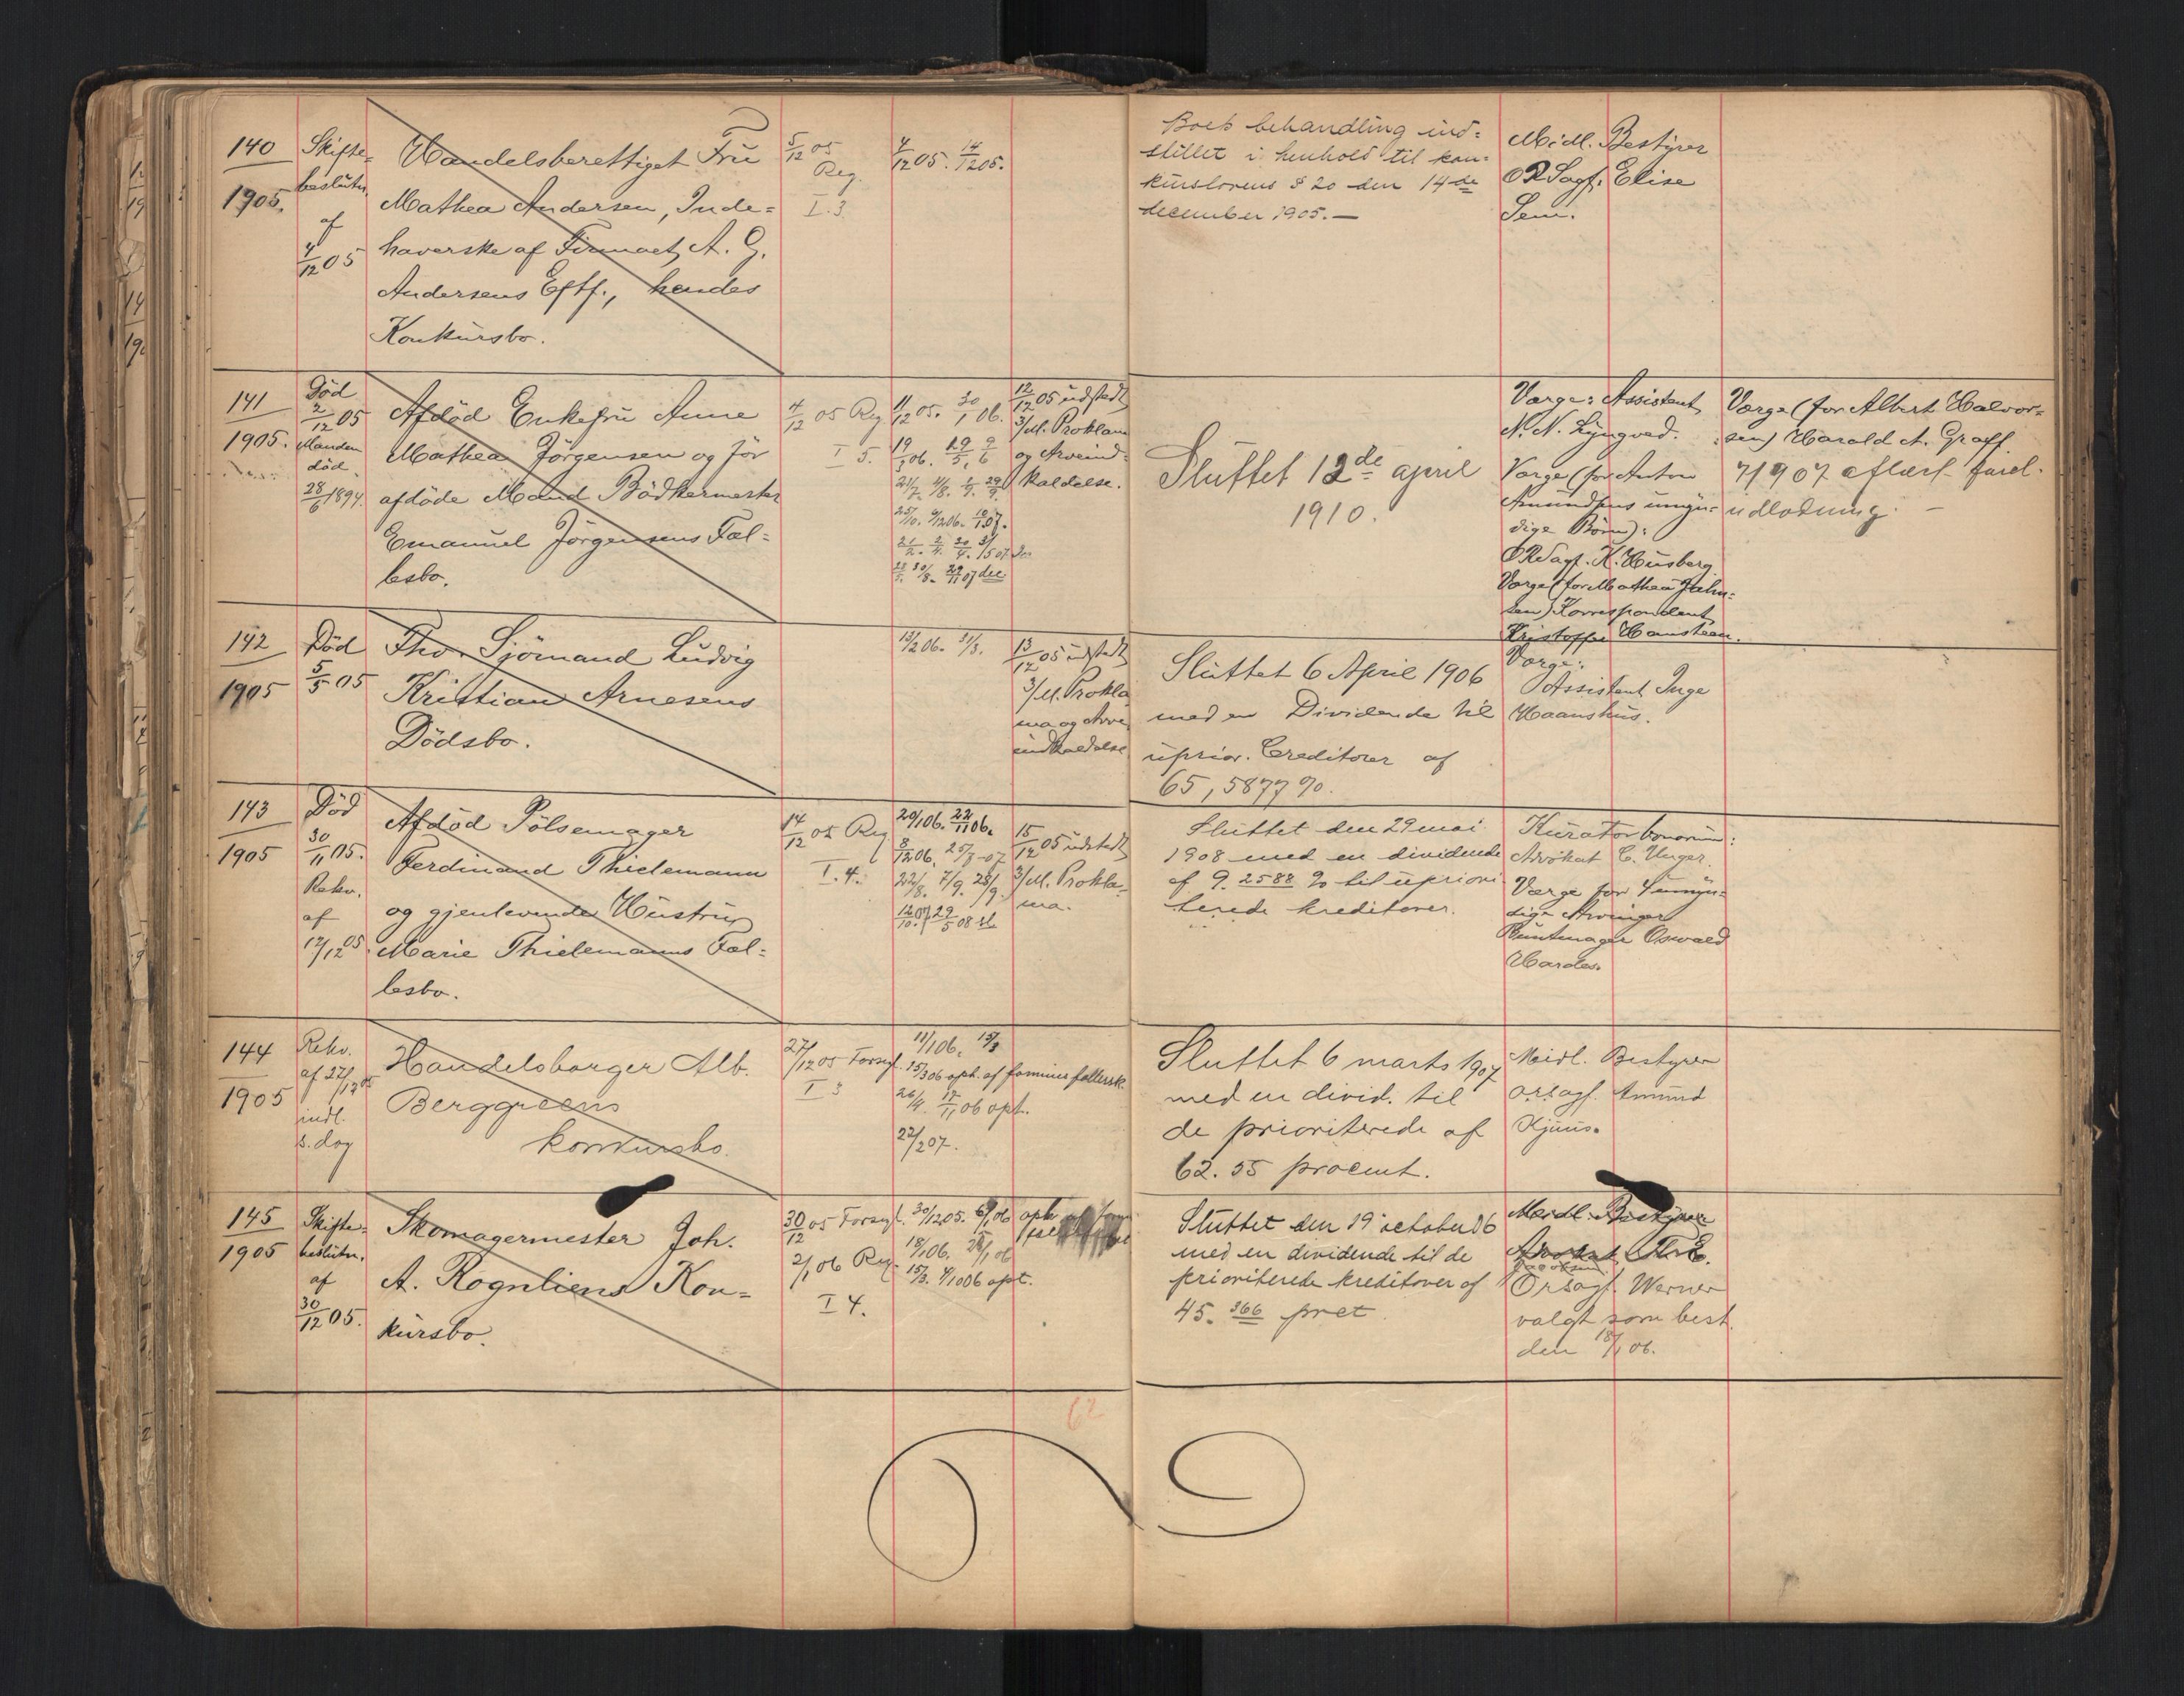 140
1905.
Skifte-
beslutn.
af
4/12 05
Handelsberettiget Fru
Mathea Andersen, Inde=
haverske af Firmaet A. G.
Andersens Eftf., hendes
Konkursbo.
5/12 05
Reg.
I. 3.
4/12 05. 14/12 05.
Boets behandling ind=
stillet i henhold til kon=
kurslovens § 20 den 14de
december 1905. —
Midl. Bestyrer
ORSagf. Elise
Sem.
141
1905.
Död
2/12 05
Manden
död.
28/6 1894.
Afdöd Enkefru Anne
Mathea Jörgensen ogför
afdöde Mand Bödkermester
Emanuel Jörgensens Fæl=
lesbo.
4/12 05 Reg.
I 5.
11/12 05. 30/1 06.
12/12 05 udstedt
3/M. Proklam
og Arveind-
kaldelse.
Sluttet 12de april
1910.
Værge: Assistent
N. N. Lyngved.
Værge (for Anton
Amundsens umyn=
dige Börn):
ORSagf. K. Husberg
Værge (for Mathea Jahn=
sen) Korrespondent
Kristoffer Hansteen.
Værge (for Albert Halvor=
sen) Harald A. Graff
7/1907 aflært. forel.
udlodning. —
142
1905
Död
5/5 05
Thv. Sjömand Ludvig
Kristian Arnesens
Dödsbo.
13/2 06. 31/3.
13/12 05 udstedt
3/M. Prokla
ma og Arve
indkaldelse
Sluttet 6 April 1906
med en Dividende til
uprior. Creditorer af
65,5877 %.
Værge:
Assistent Inge
Haanshus.
143
1905
Död
30/11 05.
Rekv.
af
12/12 05
Afdöd Pölsemager
Ferdinand Thielemann
og gjenlevende Hustru
Marie Thielemanns Fæl=
lesbo.
14/12 05 Reg
I. 4.
20/1 06. 22/11 06.
8/12 06. 25/3 07
22/8. 7/9. 28/9.
15/12 05 udstedt
3/M. Prokla-
ma.
Sluttet den 29 mai
1908 med en dividende
af 9.2588 % til upriori
terede kreditorer.
Kurator bonorum:
Advokat C. Unger.
Værge for umyn=
dige Arvinger
Buntmager Oswald
Hardes.
144
1905
Rekv.
af 27/12 05
indl.
s. dag
Handelsborger Alb.
Berggreens
konkursbo.
27/12 05 Forsegl.
I 3
11/1 06. 15/3
15/3 06 oph. af
26/4. 17/11 06 opt.
22/2 07.
Sluttet 6 marts 1907
med en divid. til
de prioriterede af
62.55 procent.
Midl. Bestyrer
orsagf. Amund
Kjuus.
145
1905
Skifte=
beslutn.
af
30/12 05.
Skomagermester Joh.
A. Rognliens Kon=
kursbo.
30/12 05 Forsegl.
2/1 06 Reg.
I 4.
30/12 05. 6/1 06 oph
18/1 06. 25/1 06
15/3. 4/10 06 opt.
Sluttet den 19 october 06
med en dividende til de
prioriterede kreditorer af
45.366 prct.
Midl. Bestyrer
Advokat
Orsagf. Werner
valgt som best.
den 18/1 06.
62